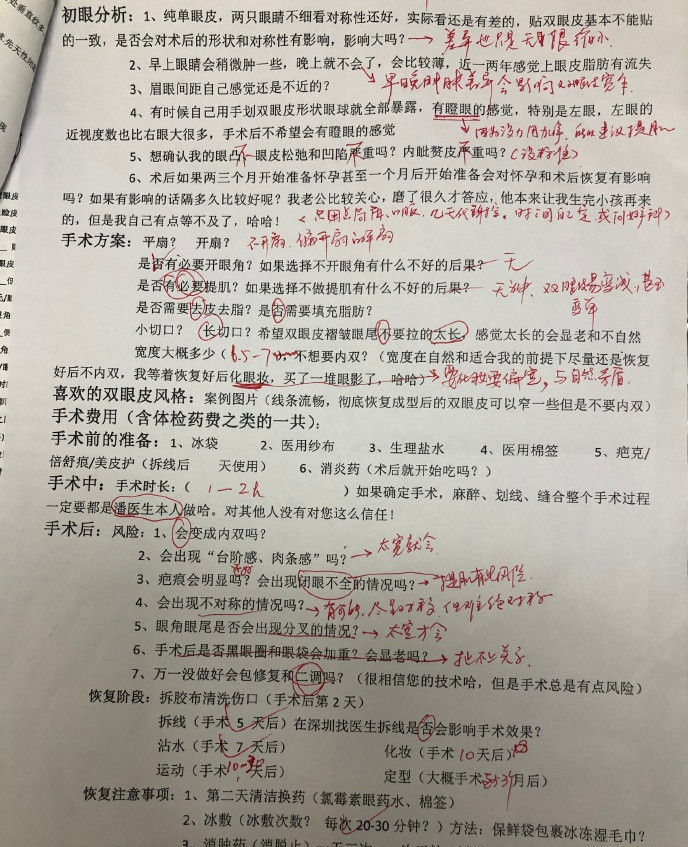 初眼分析：1、纯单眼皮，两只眼睛不细看对称性还好，实际看还是有差的，贴双眼皮基本不能贴
的一致，是否会对术后的形状和对称性有影响，影响大吗？→ 差异也只无限缩小
2、早上眼睛会稍微肿一些，晚上就不会了，会比较薄，近一两年感觉上眼皮脂肪有流失
3、眉眼间距自己感觉还是不近的？
4、有时候自己用手划双眼皮形状眼球就全部暴露，有瞪眼的感觉，特别是左眼，左眼的
近视度数也比右眼大很多，手术后不希望会有瞪眼的感觉
5、想确认我的眼凸 眼皮松弛和凹陷严重吗？内眦赘皮严重吗？
6、术后如果两三个月开始准备怀孕甚至一个月后开始准备会对怀孕和术后恢复有影响
吗？如果有影响的话隔多久比较好呢？我老公比较关心，磨了很久才答应，他本来让我生完小孩再来
的，但是我自己有点等不及了，哈哈！
手术方案：平扇？ 开扇？ 不开扇
是否有必要开眼角？如果选择不开眼角有什么不好的后果？ 无
是否有必要提肌？如果选择不做提肌有什么不好的后果？
是否需要去皮去脂？是否需要填充脂肪？
小切口？ 长切口？希望双眼皮褶皱眼尾不要拉的太长，感觉太长的会显老和不自然
宽度大概多少（6.5-7 不想要内双？（宽度在自然和适合我的前提下尽量还是恢复
好后不内双，我等着恢复好后化眼妆，买了一堆眼影了，哈哈）→ 要化妆要偏宽，与自然矛盾
喜欢的双眼皮风格：案例图片（线条流畅，彻底恢复成型后的双眼皮可以窄一些但是不要内双）
手术费用（含体检药费之类的一共）：
手术前的准备：1、冰袋 2、医用纱布 3、生理盐水 4、医用棉签 5、疤克/
倍舒痕/美皮护（拆线后 天使用） 6、消炎药（术后就开始吃吗？）
手术中：手术时长：（ 1—2h ）如果确定手术，麻醉、划线、缝合整个手术过程
一定要都是潘医生本人做哈。对其他人没有对您这么信任！
手术后：风险：1、会变成内双吗？
2、会出现“台阶感、肉条感”吗？→ 太宽就会
3、疤痕会明显吗？会出现闭眼不全的情况吗？→ 提肌有此风险
4、会出现不对称的情况吗？→ 有可能，尽量对称 但难绝对称
5、眼角眼尾是否会出现分叉的情况？→ 太宽才会
6、手术后是否黑眼圈和眼袋会加重？会显老吗？
7、万一没做好会包修复和二调吗？（很相信您的技术哈，但是手术总是有点风险）
恢复阶段：拆胶布清洗伤口（手术后第 2 天）
拆线（手术 5 天后）在深圳找医生拆线是否会影响手术效果？
沾水（手术 7 天后） 化妆（手术 10 天后）
运动（手术 天后） 定型（大概手术 月后）
恢复注意事项：1、第二天清洁换药（氯霉素眼药水、棉签）
2、冰敷（冰敷次数？ 每次 20-30 分钟？）方法：保鲜袋包裹冰冻湿毛巾？